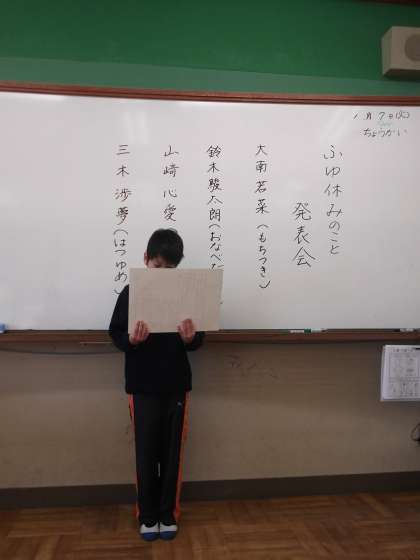 1月7日(火)
ちょうかい
ふゆ休みのこと
発表会
大南若菜(もちつき)
鈴木駿太朗(おなべ
山崎心愛
三木渉夢(はつゆめ)